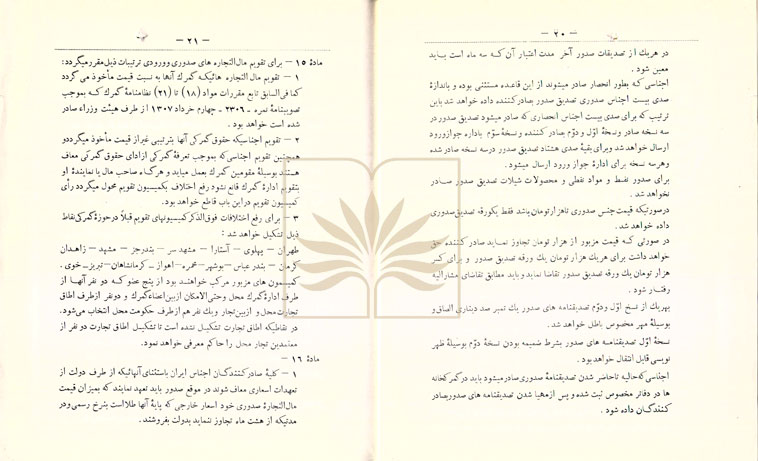 — ۲۰ —
در هریك از تصدیقات صدور آخر مدت اعتبار آن که سه ماه است باید
معین شود .
اجناسی که بطور انحصار صادر میشوند از این قاعده مستثنی بوده و باندازهٔ
صدی بیست اجناس صدوری تصدیق صدور بصادرکننده داده خواهد شد باین
ترتیب که برای صدی بیست اجناس انحصاری که صادر میشود تصدیق صدور در
سه نسخه صادر ونسخهٔ اوّل و دوّم بصادرکننده ونسخهٔ سوّم باداره جوازورود
ارسال خواهد شد وبرای بقیهٔ صدی هشتاد تصدیق صدور درسه نسخه صادر شده
وهرسه نسخه برای ادارهٔ جواز ورود ارسال میشود.
برای صدور نفط و مواد نفطی و محصولات شیلات تصدیق صدور صادر
نخواهد شد .
درصورتیکه قیمت جنس صدوری تاهزارتومان باشد فقط یکورقه تصدیق صدوری
داده خواهد شد .
در صورتی که قیمت مزبور از هزار تومان تجاوز نماید صادر کننده حق
خواهد داشت برای هریك هزار تومان یك ورقه تصدیق صدور و برای کسر
هزار تومان یك ورقه تصدیق صدور تقاضا نماید و باید مطابق تقاضای مشارالیه
رفتار شود .
بهریك از نسخ اوّل ودوّم تصدیقنامه های صدور یك تمبر صد دیناری الصاق و
بوسیلهٔ مهر مخصوص باطل خواهد شد .
نسخهٔ اوّل تصدیقنامه های صدور بشرط ضمیمه بودن نسخهٔ دوّم بوسیلهٔ ظهر
نویسی قابل انتقال خواهد بود .
اجناسی که حالیه تاحاضر شدن تصدیقنامهٔ صدوری صادر میشود باید در گمرکخانه
ها در دفاتر مخصوص ثبت شده و پس از مهیا شدن تصدیقنامه های صدور بصادر
کنندگان داده شود .
— ۲۱ —
مادهٔ ۱۵ — برای تقویم مال التجاره های صدوری وورودی ترتیبات ذیل مقرر میگردد:
۱ — تقویم مال التجاره هائیکه گمرك آنها به نسبت قیمت مأخوذ می گردد
کما فی السابق تابع مقررات مواد (۱۸) تا (۲۱) نظامنامهٔ گمرك که بموجب
تصویبنامهٔ نمره ۲۳۰۶ — چهارم خرداد ۱۳۰۷ از طرف هیئت وزراء صادر
شده است خواهد بود .
۲ — تقویم اجناسیکه حقوق گمرکی آنها بترتیبی غیراز قیمت مأخوذ میگردد و
همچنین تقویم اجناسی که بموجب تعرفهٔ گمرکی ازادای حقوق گمرکی معاف
هستند بوسیلهٔ مقومین گمرك بعمل میاید و هرگاه صاحب مال یا نمایندهٔ او
بتقویم ادارهٔ گمرك قانع نشود رفع اختلاف بکمیسیون تقویم محول میگردد رأی
کمیسیون تقویم دراین باب قاطع خواهد بود.
۳ — برای رفع اختلافات فوق الذکر کمیسیونهای تقویم قبلاً درحوزهٔ گمرکی نقاط
ذیل تشکیل خواهد شد :
طهران — پهلوی — آستارا — مشهدسر — بندرجز — مشهد — زاهدان
کرمان — بندر عباس — بوشهر — محمره — اهواز — کرمانشاهان — تبریز — خوی .
کمیسیون های مزبور مرکب خواهند بود از پنج عضو که دو نفر آنها از
طرف ادارهٔ گمرك محل وحتی الامکان ازبین اعضاء گمرك و دو نفر ازطرف اطاق
تجارت محل و ازبین تجار و یك نفر هم ازطرف حکومت محل انتخاب می شود.
در نقاطیکه اطاق تجارت تشکیل نشده است تا تشکیل اطاق تجارت دو نفر از
معتمدین تجار محل را حاکم معرفی خواهد نمود.
مادهٔ ۱۶ —
۱ — کلیهٔ صادرکنندگان اجناس ایران باستثنای آنهائیکه از طرف دولت از
تعهدات اسعاری معاف شوند در موقع صدور باید تعهد نمایند که بمیزان قیمت
مال التجارهٔ صدوری خود اسعار خارجی که پایهٔ آنها طلااست بنرخ رسمی و در
مدتیکه از هشت ماه تجاوز ننماید بدولت بفروشند.